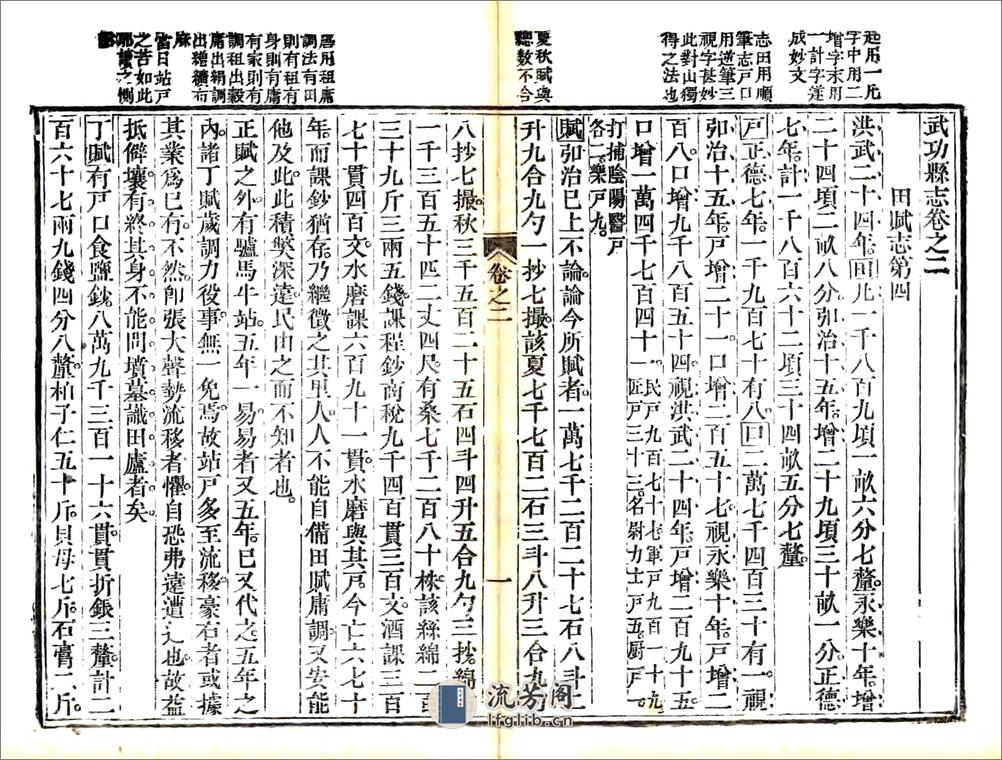 武功縣志卷之二
田賦志第四
洪武二十四年田凡一千八百九頃一畝六分七釐永樂十年增
二十四頃二畝八分弘治十五年增二十九頃三十畝一分正德
七年計一千八百六十二頃三十四畝五分七釐
戶正德七年一千九百七十有八口二萬七千四百三十有一視
弘治十五年戶增二十一口增二百五十七視永樂十年戶增二
百八口增九千八百五十四視洪武二十四年戶增二百九十五
口增一萬四千七百四十一民戶九百七十七軍戶九百一十九
匠戶三十三名尉力士戶五厨戶一
打捕陰陽醫戶
各二樂戶九
賦弘治已上不論論今所賦者一萬七千二百二十七石八斗二
升九合九勺一抄七撮該夏七千七百二石三斗八升三合九勺
八抄七撮秋三千五百二十五石四斗四升五合九勺三抄綿
一千三百五十匹二丈四尺有桑七千二百八十株該絲綿二百
三十九斤三兩五錢課程鈔商稅九千四百貫三百文酒課三百
七十貫四百文水磨課六百九十一貫水磨與其戶今亡六七十
年而課鈔猶存乃繼徵之其里人人不能自備田賦庸調又安能
他及此此積獘深遠民由之而不知者也
正賦之外有驢馬牛站五年一易易者又五年已又代之五年之
內諸丁賦歲調力役事無一免焉故站戶多至流移豪右者或據
其業爲已有不然卽張大聲勢流移者懼自恐弗遠遭之也故益
抵僻壤有終其身不能問墳墓識田廬者矣
丁賦有戶口食鹽鈔八萬九千三百一十六貫貫折銀三釐計二
百六十七兩九錢四分八釐柏子仁五十斤貝母七斤石膏二斤
卷之二
一
起用一凡
字中用二
增字末用
一計字遂
成妙文
志田用順
筆志戶口
用逆筆三
視字甚妙
此對山獨
得之法也
夏秋賦與
總數不合
唐用租庸
調法有田
則有租有
身則有庸
有家則有
調租出穀
庸出絹調
出繒纊布
麻
當日站戶
之苦如此
流芳阁
lfglib.com